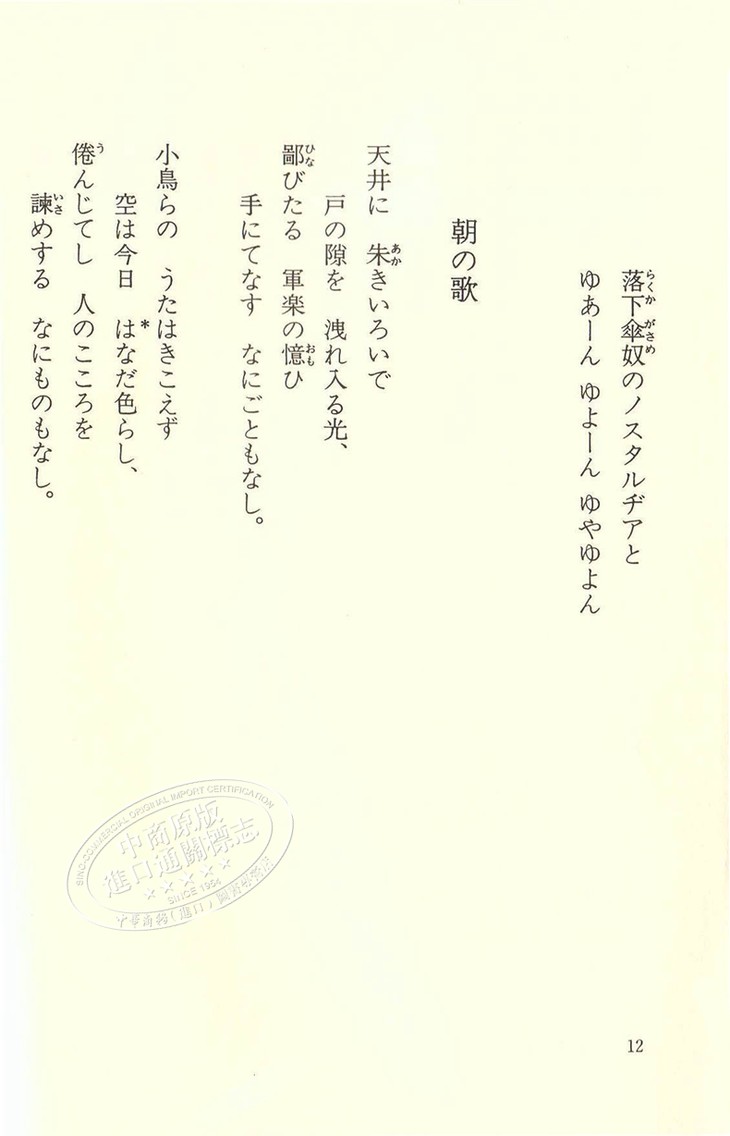 落下傘奴のノスタルヂアと
ゆあーん ゆよーん ゆやゆよん
朝の歌
天井に　朱きいろいで
戸の隙を　洩れ入る光、
鄙びたる　軍楽の憶ひ
手にてなす　なにごともなし。
小鳥らの　うたはきこえず
空は今日　はなだ色らし、
倦んじてし　人のこころを
諫めする　なにものもなし。
12
SINO-COMMERCIAL ORIGINAL IMPORT CERTIFICATION
中商原版
進口通關標志
SINCE 1954